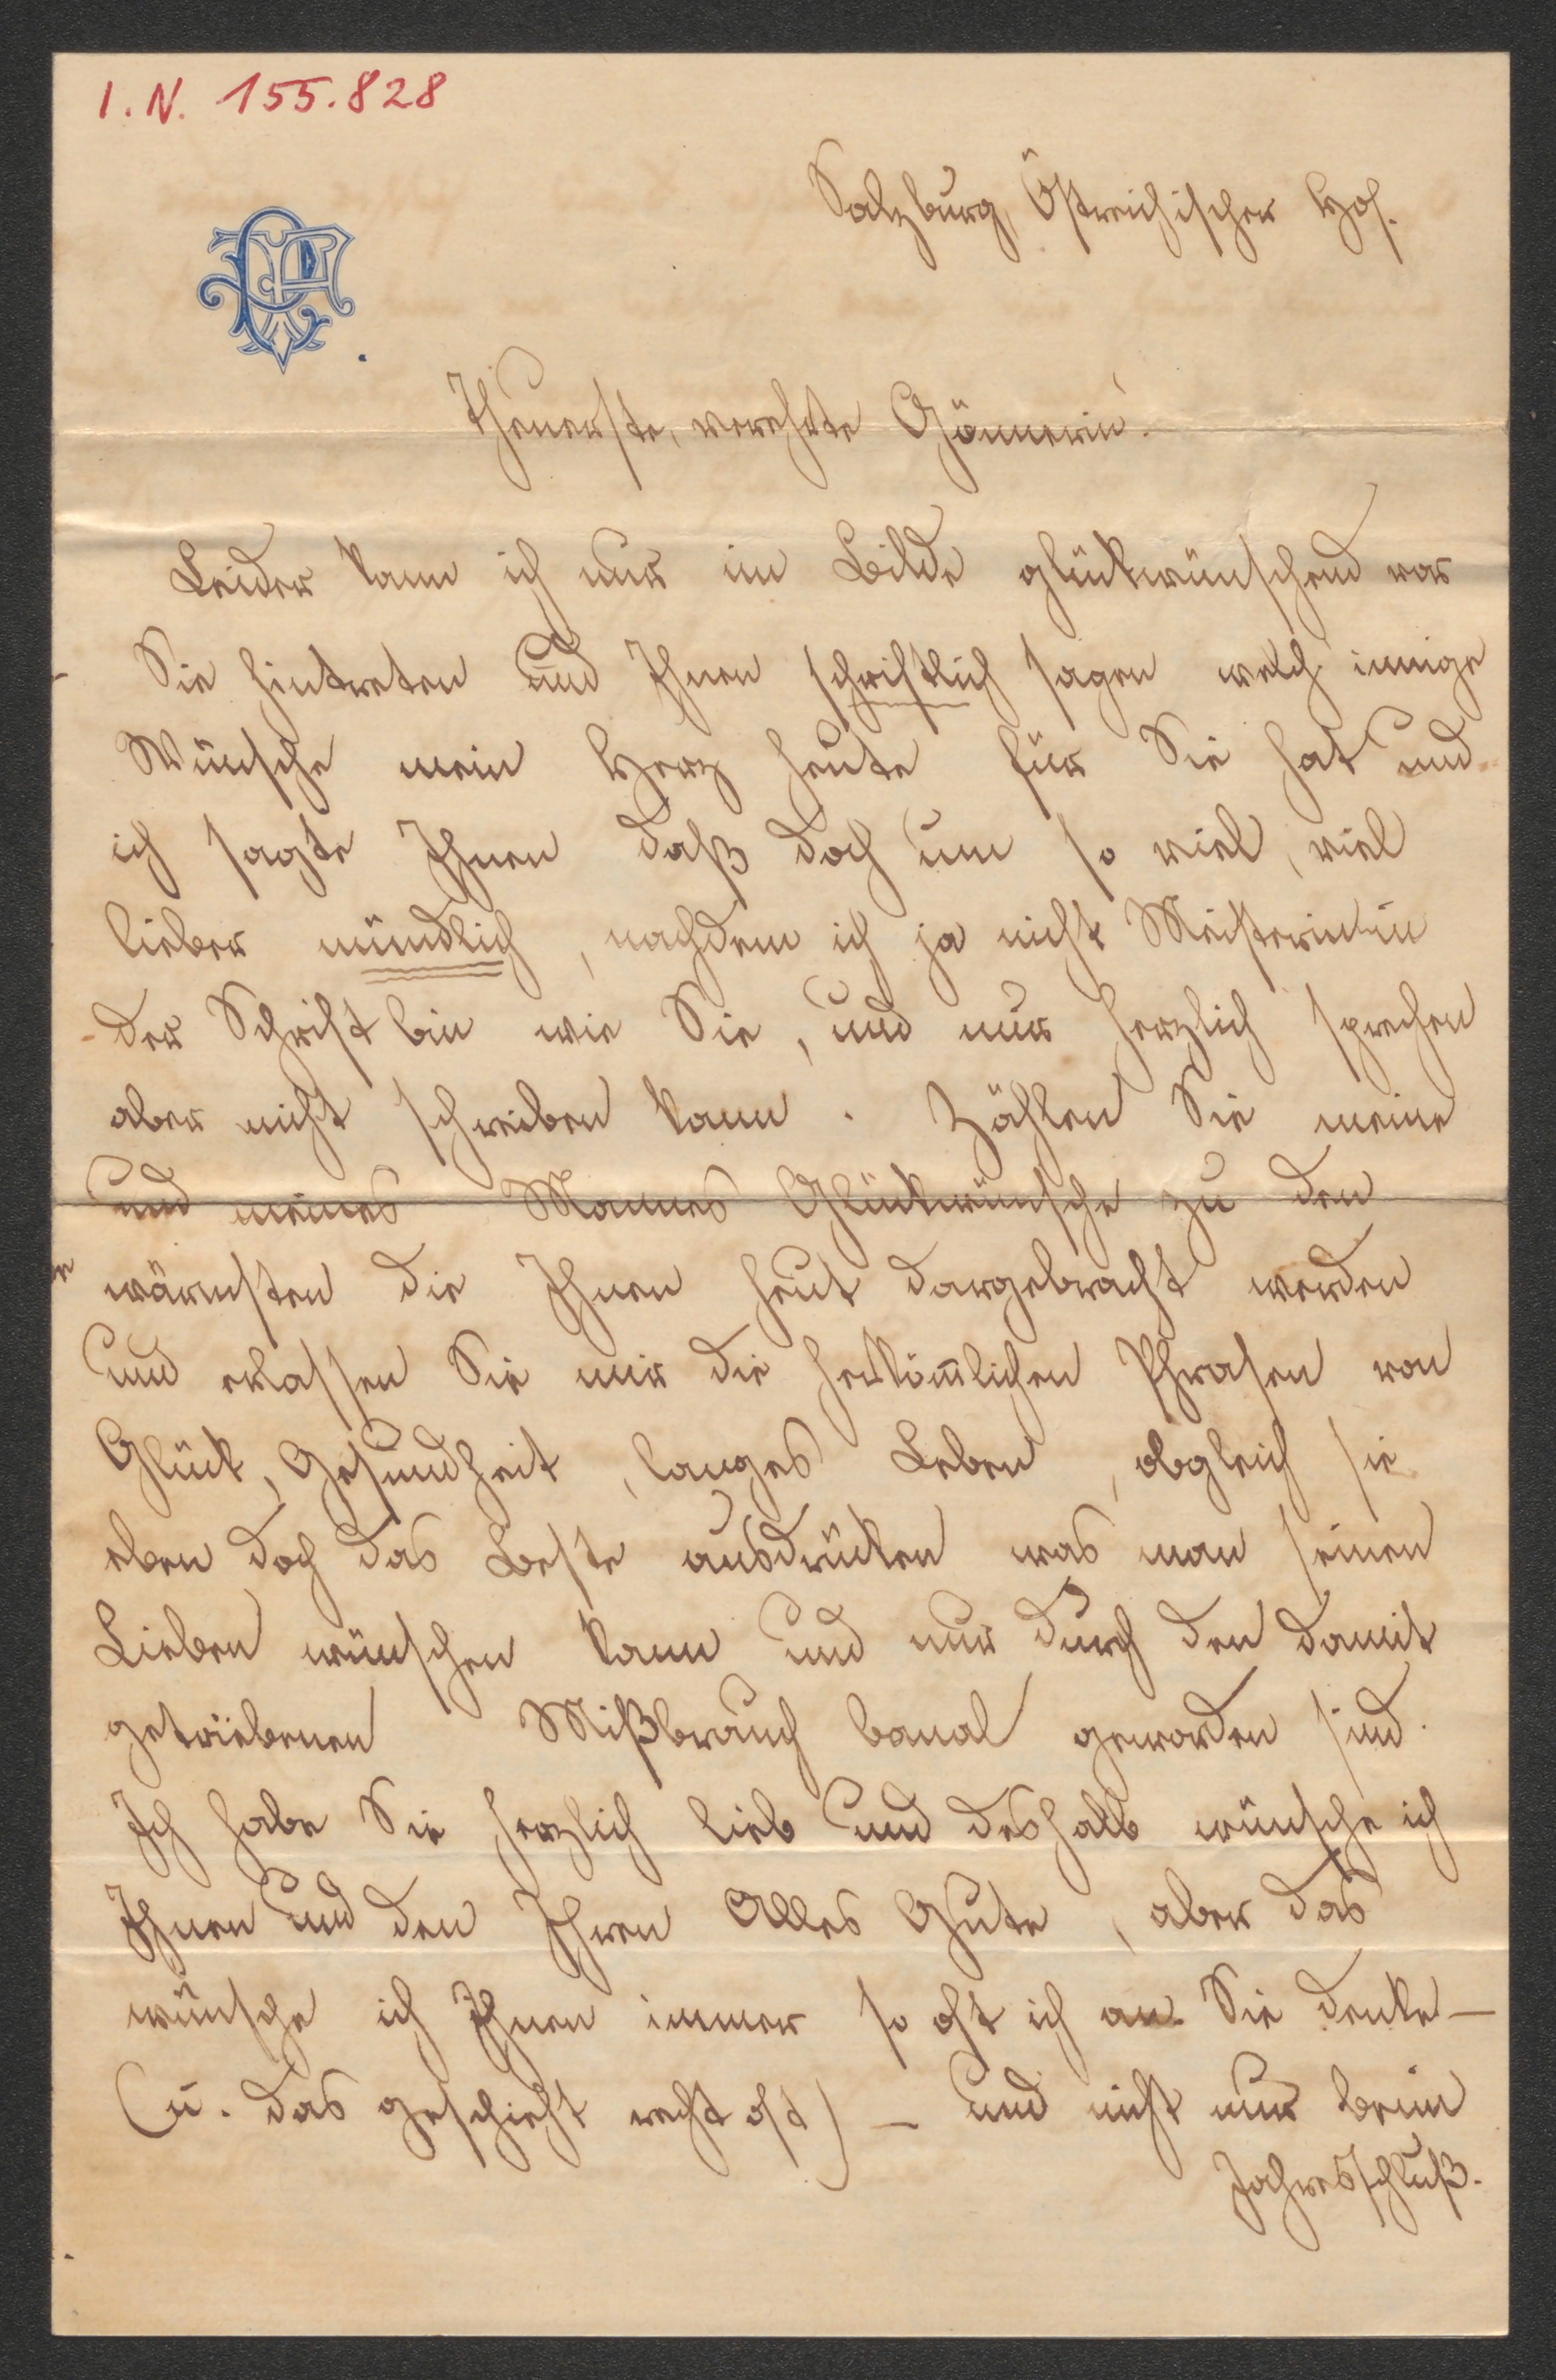 I.N. 155.828
Salzburg, Östreichischer Hof.
Theuerste, verehrte Gönnerin!
Leider kann ich nur im Bilde glückwünschend vor
Sie hintreten und Ihnen schriftlich sagen welch innige
Wünsche mein Herz heute für Sie hat und
ich sagte Ihnen daß doch um so viel, viel
lieber mündlich, nachdem ich ja nicht Meisterin in
der Schrift bin wie Sie, und nur herzlich sprechen
aber nicht schreiben kann. Zählen Sie meine
und meines Mannes Glückwünsche zu den
wärmsten die Ihnen heut dargebracht werden
und erlassen Sie mir die herköm̅lichen Phrasen von
Glück, Gesundheit, langes Leben, obgleich sie
eben doch das Beste ausdrücken was man seinen
Lieben wünschen kann und nur durch den damit
getriebenen Mißbrauch banal geworden sind.
Ich habe Sie herzlich lieb und deshalb wünsche ich
Ihnen und den Ihren Alles Gute, aber das
wünsche ich Ihnen immer so oft ich an Sie denke –
(u. das geschieht recht oft) – und nicht nur beim
Jahresschluß.